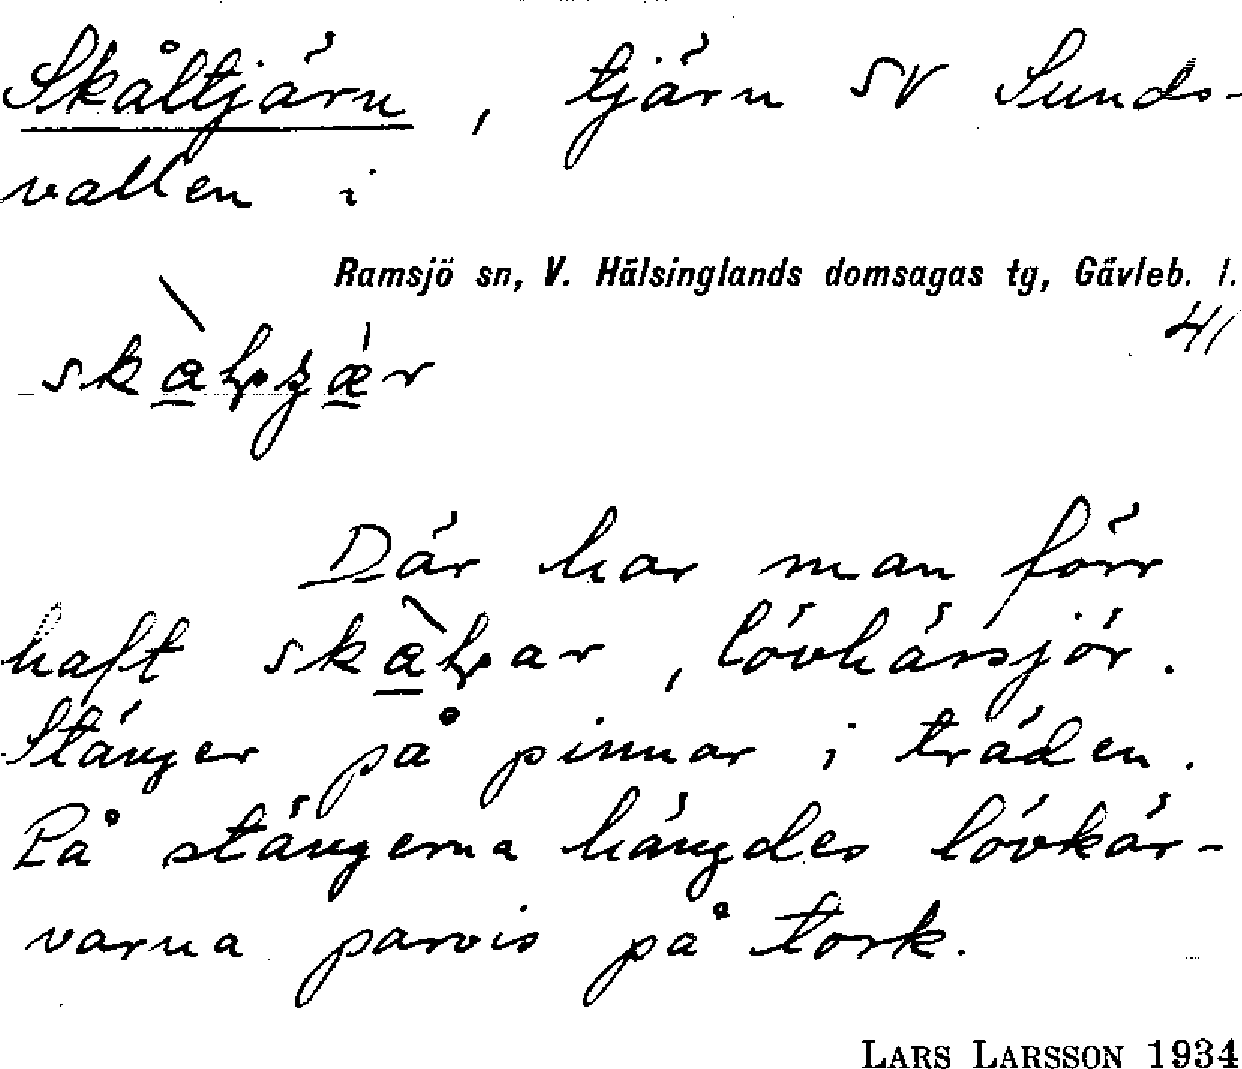 Skåltjärn, tjärn SV Sunds-
vallen i
Ramsjö sn, V. Hälsinglands domsagas tg, Gävleb. l.
41
Där har man förr
haft lövhässjör.
Stänger på pinnar i träden.
På stängerna hängdes lövkär-
varna parvis på tork.
LARS LARSSON 1934